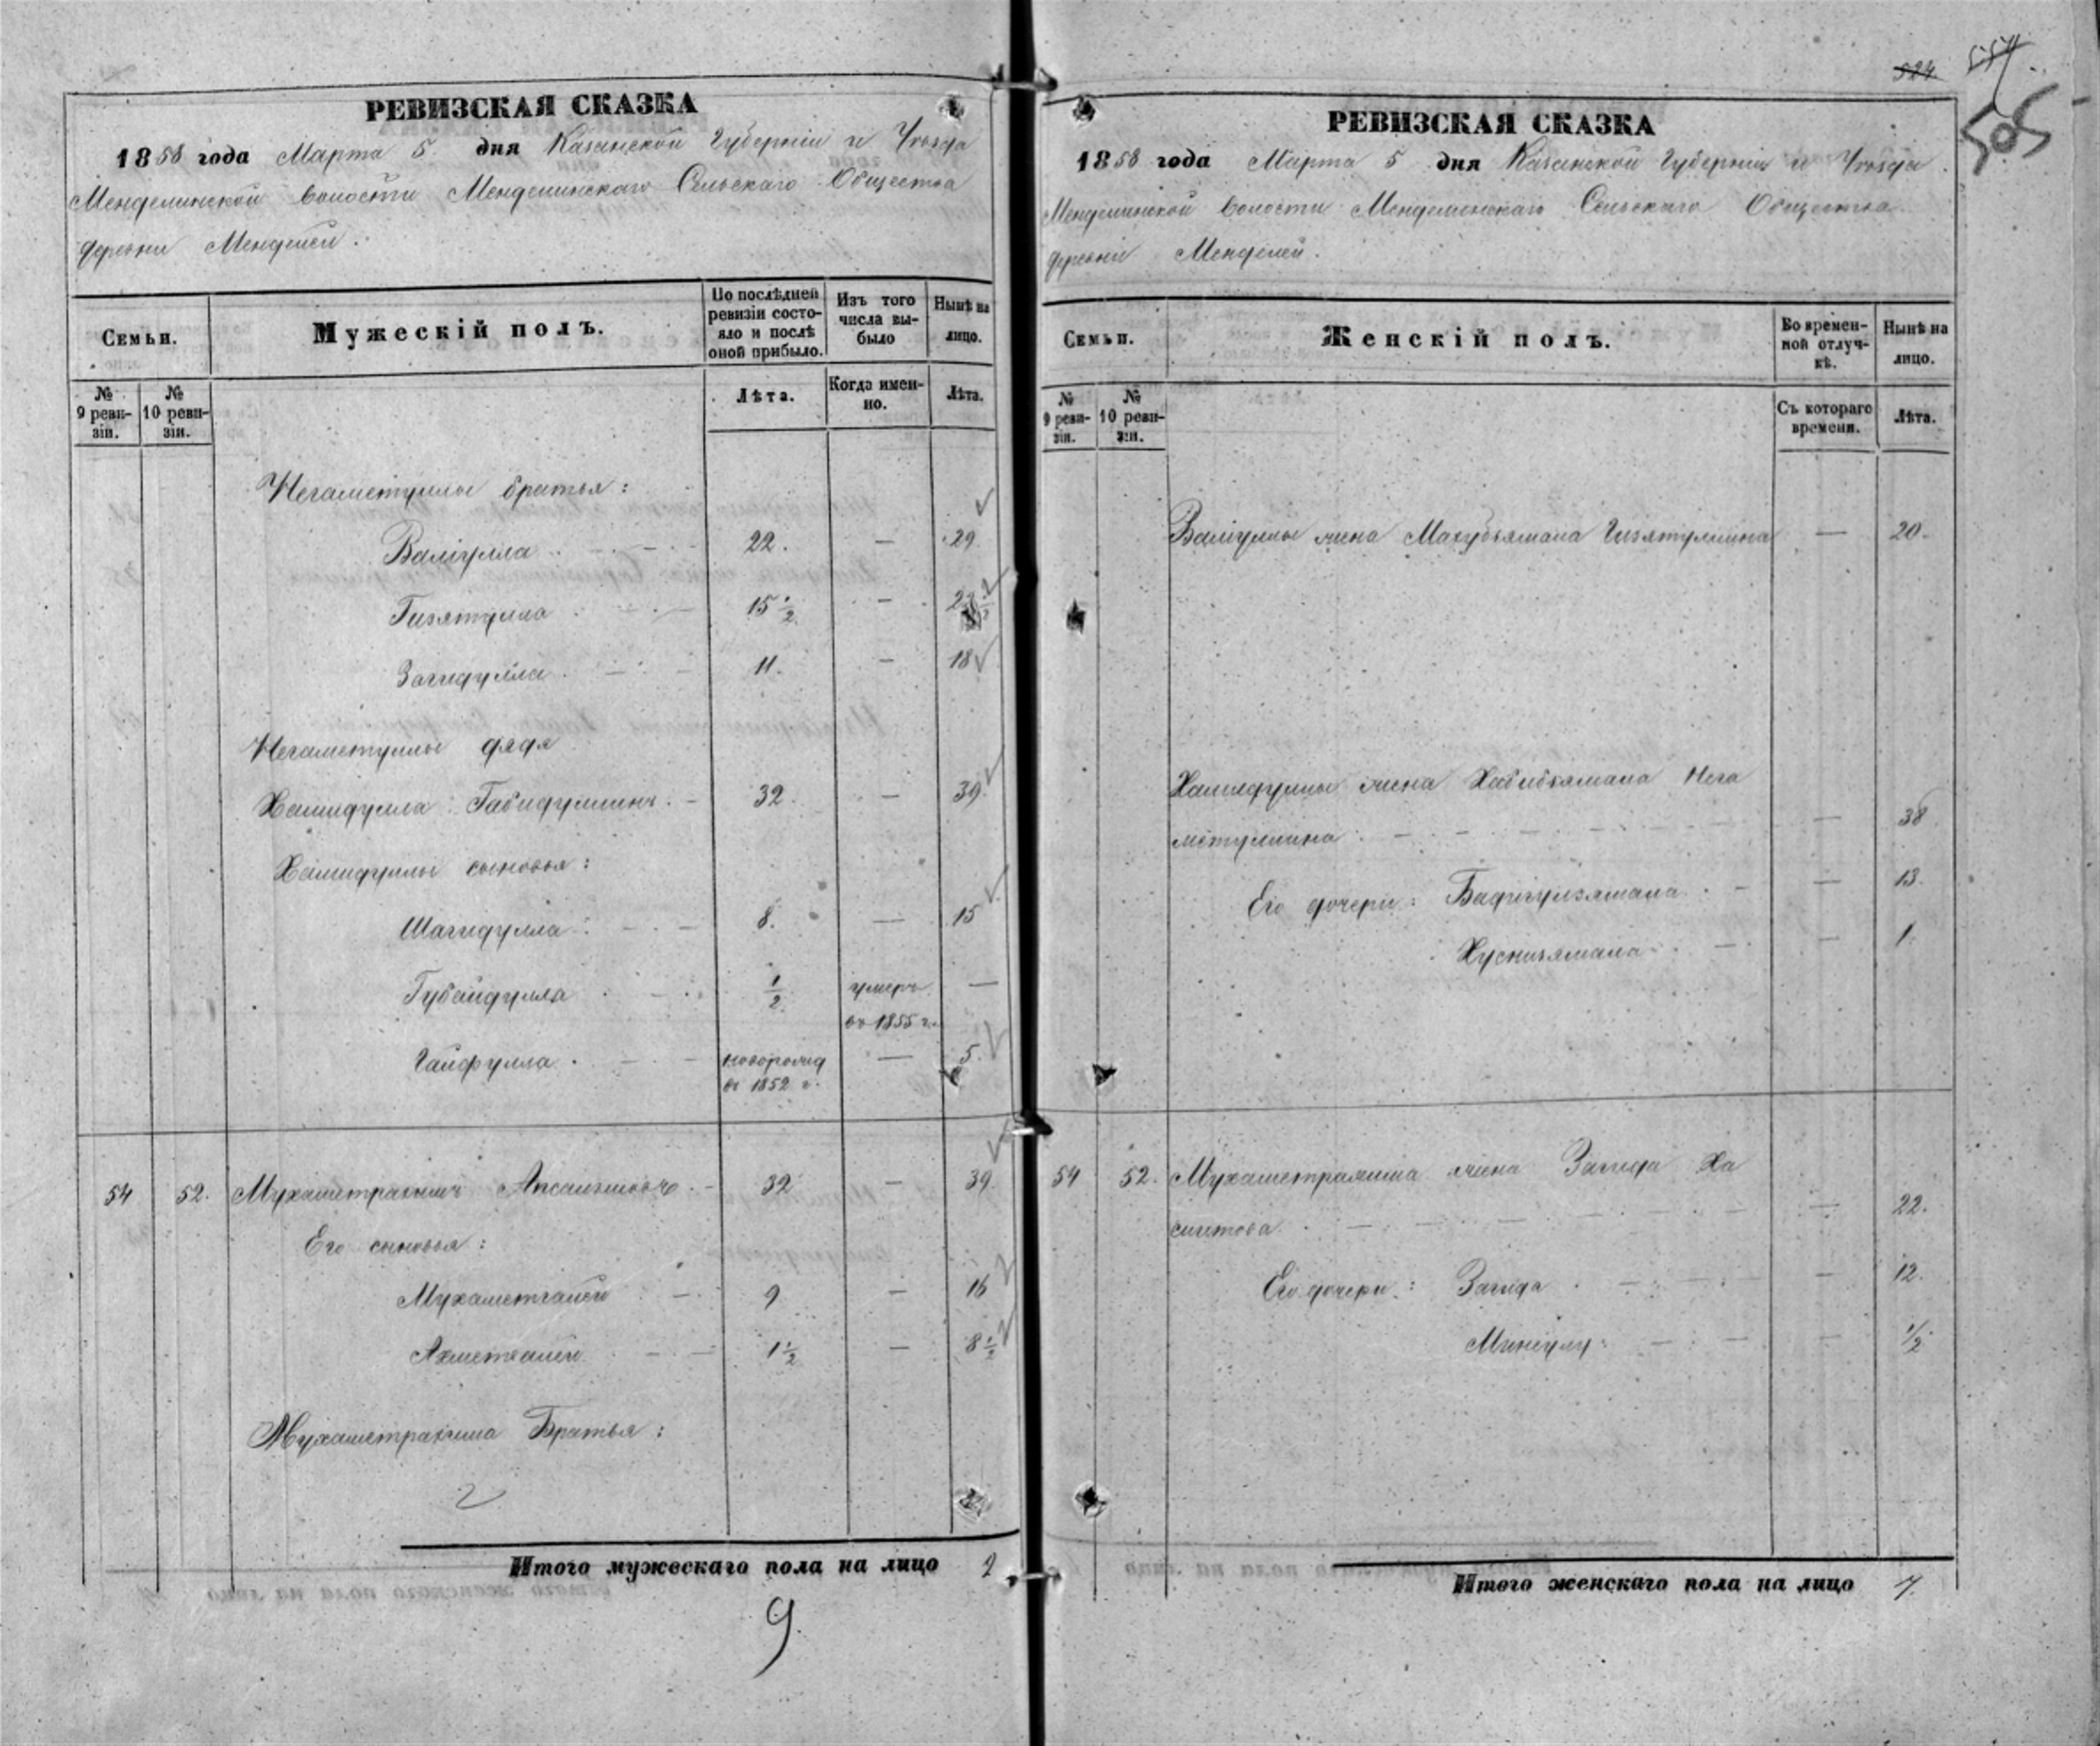 РЕВИЗСКАЯ СКАЗКА
1858 года Марта 5 дня Казанской Губерніи и Уѣзда
Менделинской волости Менделинскаго Сельскаго Общества
деревни Менделей.
Семьи.
Мужескій полъ.
По послѣдней ревизіи состояло и послѣ оной прибыло.
Изъ того числа выбыло
Нынѣ на лицо.
№ 9 ревизіи.
№ 10 ревизіи.
Лѣта.
Когда именно.
Лѣта.
Негаметуллы братья:
Валіулла 22. — 29
Гизятулла 15 1/2 —
Загидулла 11. — 18
Негаметуллы дядя
Хамидулла Габидуллинъ 32. — 39.
Хамидуллы сыновья:
Шагидулла 8. — 15
Губайдулла 1/2 умеръ —
въ 1855 г.
Гайфулла новорожд — 5.
въ 1852 г.
54 52. Мухаметрахимъ 32 — 39.
Его сыновья:
Мухаметгалей 9 — 16
Ахметгалей 1 1/2 — 8 1/2
Мухаметрахима Братья:
Итого мужескаго пола на лицо 9
9
524
505
РЕВИЗСКАЯ СКАЗКА
1858 года Марта 5 дня Казанской Губерніи и Уѣзда
Менделинской волости Менделинскаго Сельскаго Общества
деревни Менделей.
Семьи.
Женскій полъ.
Во временной отлучкѣ.
Нынѣ на лицо.
№ 9 ревизіи.
№ 10 ревизіи.
Съ котораго времени.
Лѣта.
Валіуллы жена Махубзямала Гизятуллина — 20.
Хамидуллы жена Хабибзямала Нега
метуллина — 38
Его дочери: Бадригулзямала — 13.
Хуснизямала — 1.
54 52. Мухаметрахима жена Загида Ха
ситова — 22.
Его дочери: Загида — 12.
— 1/2
Итого женскаго пола на лицо 7.